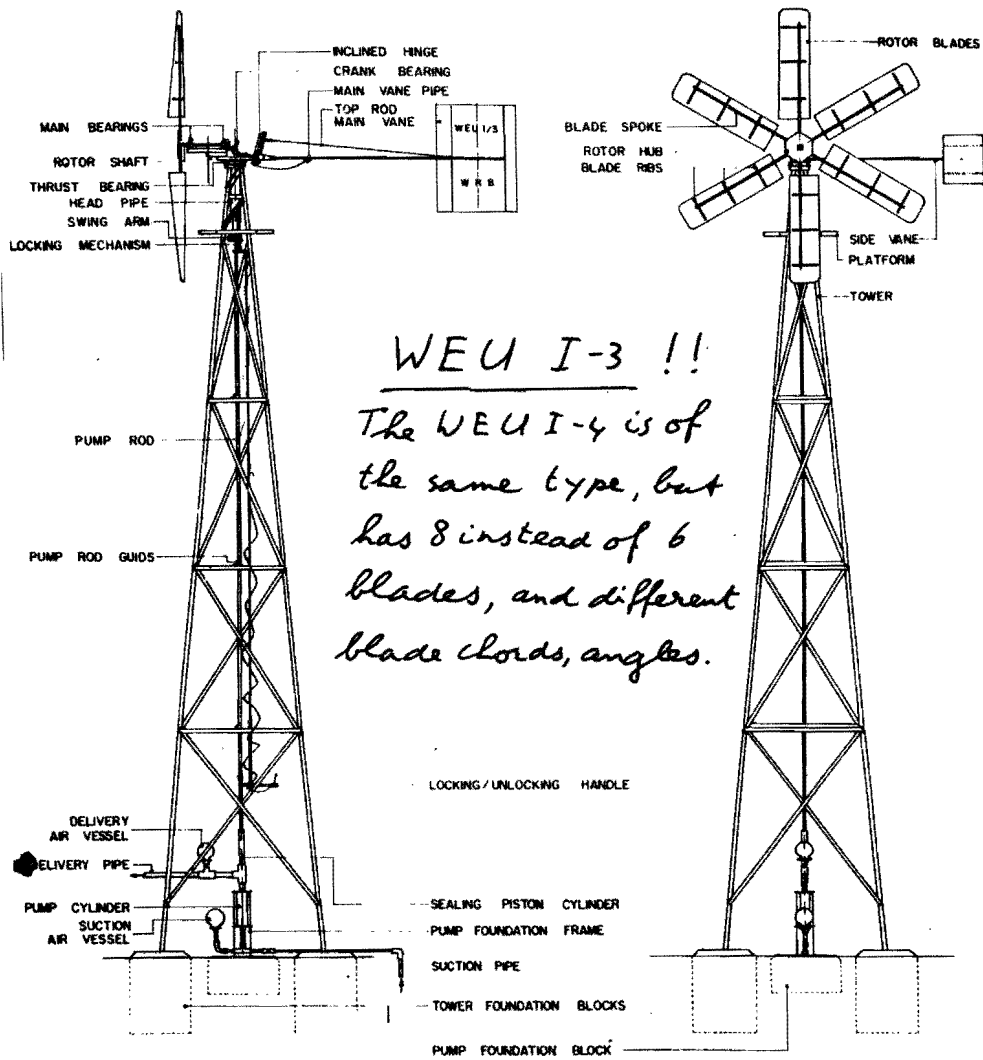 INCLINED HINGE
CRANK BEARING
MAIN VANE PIPE
TOP ROD
MAIN VANE
MAIN BEARINGS
ROTOR SHAFT
THRUST BEARING
HEAD PIPE
SWING ARM
LOCKING MECHANISM
WEU I/3
W R B
ROTOR BLADES
BLADE SPOKE
ROTOR HUB
BLADE RIBS
SIDE VANE
PLATFORM
TOWER
WEU I-3 !!
The WEU I-4 is of
the same type, but
has 8 instead of 6
blades, and different
blade chords, angles.
PUMP ROD
PUMP ROD GUIDS
LOCKING/UNLOCKING HANDLE
DELIVERY
AIR VESSEL
ELIVERY PIPE
PUMP CYLINDER
SUCTION
AIR VESSEL
SEALING PISTON CYLINDER
PUMP FOUNDATION FRAME
SUCTION PIPE
TOWER FOUNDATION BLOCKS
PUMP FOUNDATION BLOCK